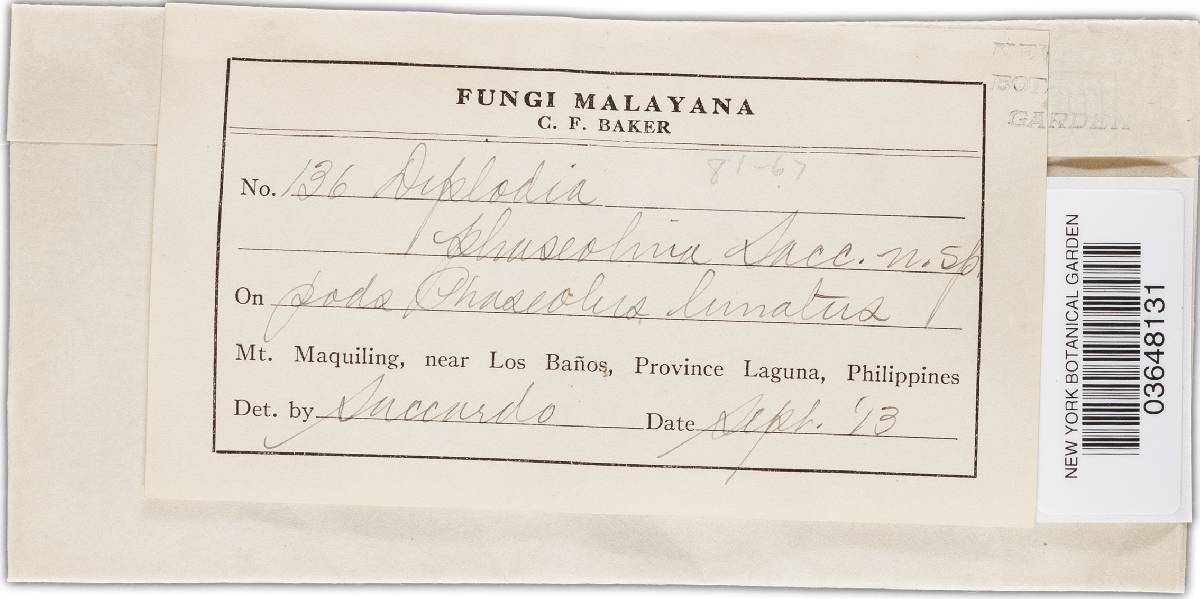 FUNGI MALAYANA
C. F. BAKER
81-67
No. 136 Diplodia
Phaseolina Sacc. n. sp.
On pods Phaseolus lunatus
Mt. Maquiling, near Los Baños, Province Laguna, Philippines
Det. by Saccardo Date Sept. '13
BOT
GARDEN
NEW YORK BOTANICAL GARDEN
03648131